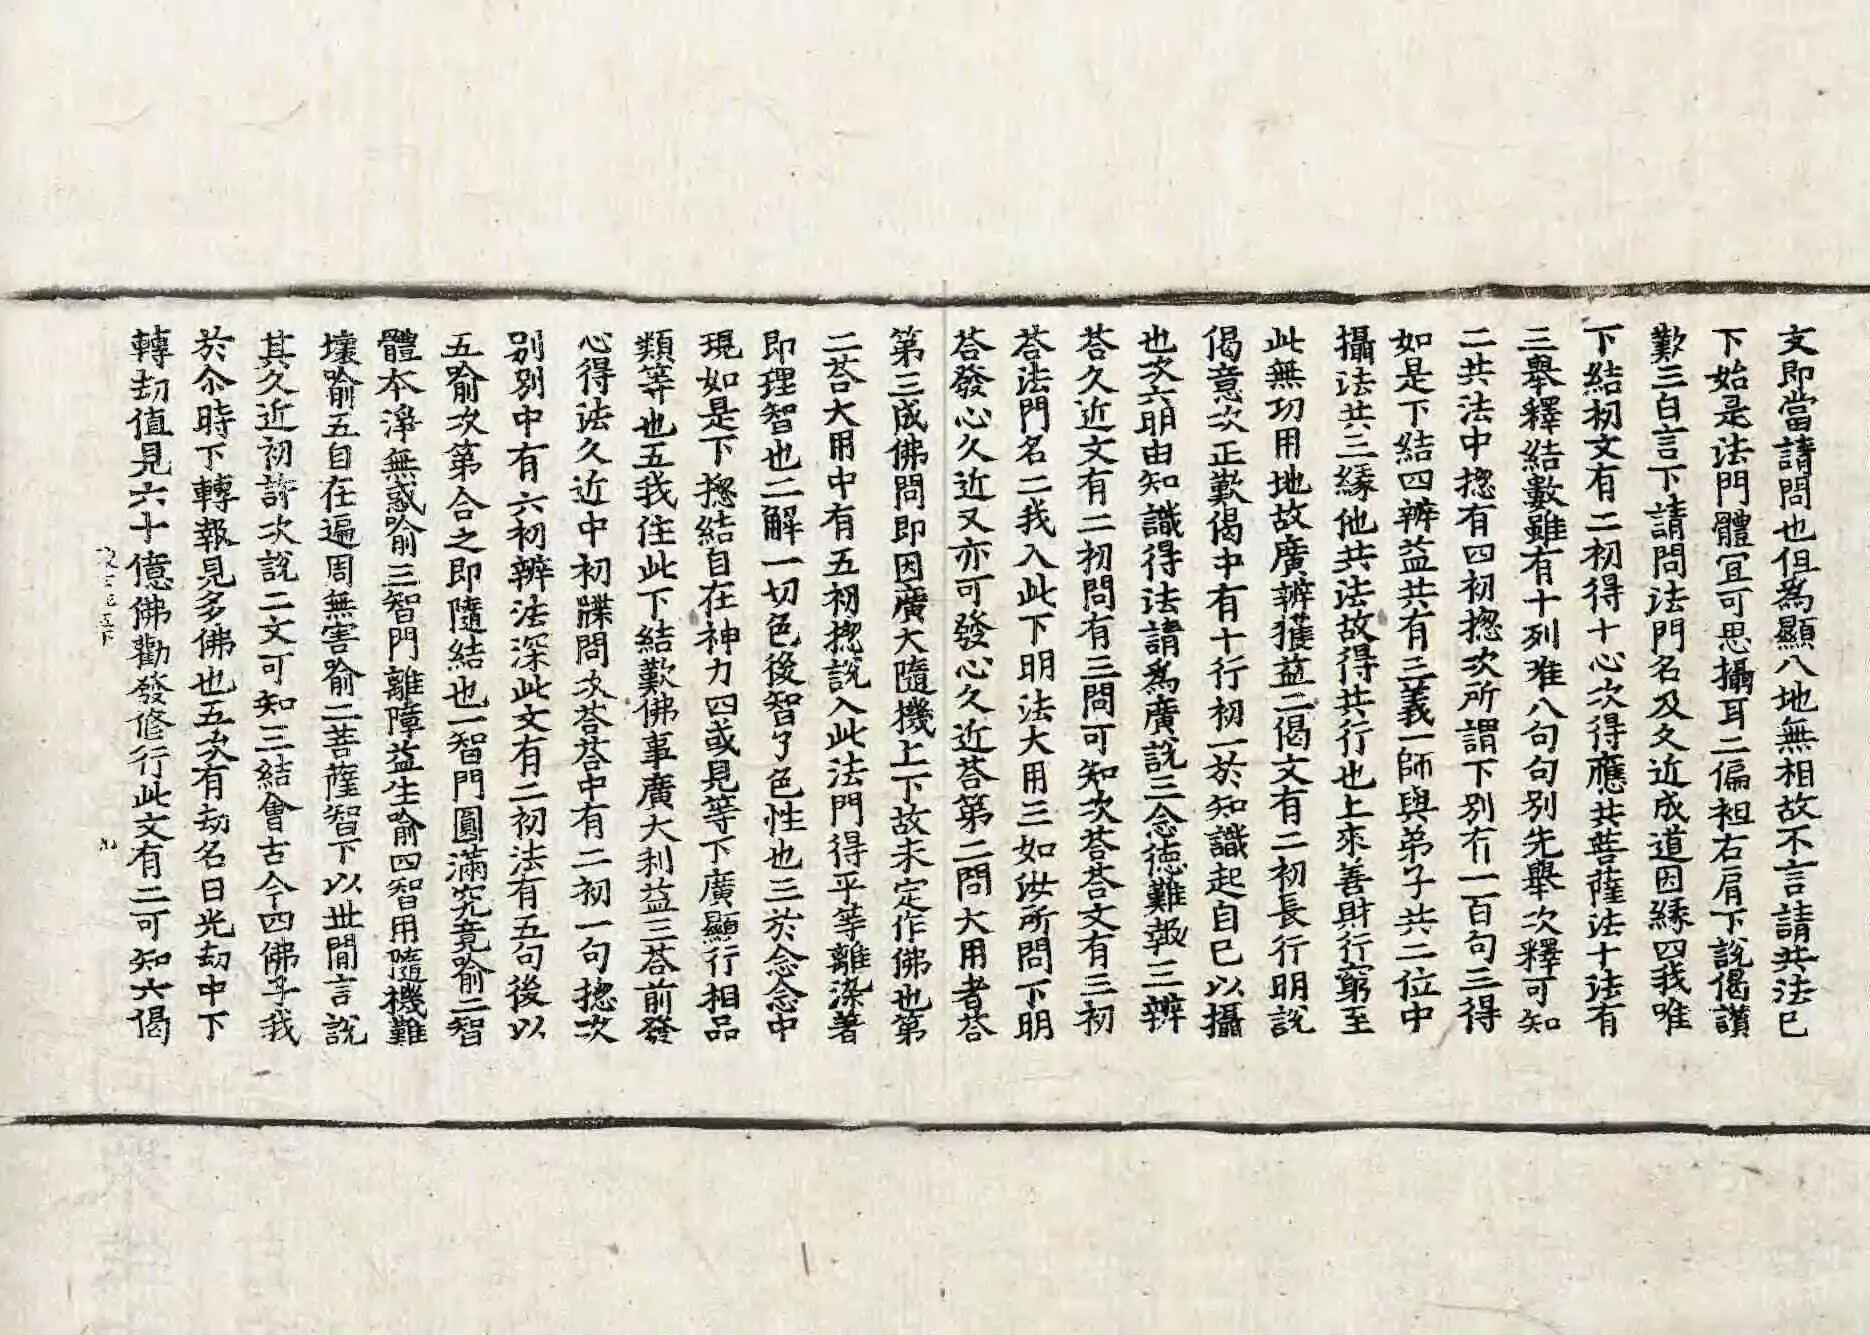 文即當請問也但為顯八地無相故不言請共法已
下始是法門體宜可思攝耳二偏袒右肩下說偈讃
歎三白言下請問法門名及久近成道因緣四我唯
下結初文有二初得十心次得應共菩薩法十法有
三舉釋結數雖有十列唯八句句別先舉次釋可知
二共法中揔有四初揔次所謂下別有一百句三得
如是下結四辨益共有三義一師與弟子共二位中
攝法共三緣他共法故得共行也上來善財行窮至
此無功用地故廣辨獲益二偈文有二初長行明說
偈意次正歎偈中有十行初一於知識起自已以攝
也次六明由知識得法請為廣說三念德難報三辨
荅久近文有二初問有三問可知次荅荅文有三初
荅法門名二我入此下明法大用三如汝所問下明
荅發心久近又亦可發心久近荅第二問大用者荅
第三成佛問即因廣大隨機上下故未定作佛也第
二荅大用中有五初揔說入此法門得平等離染著
即理智也二解一切色後智了色性也三於念念中
現如是下揔結自在神力四或見等下廣顯行相品
類等也五我住此下結歎佛事廣大利益三荅前發
心得法久近中初牒問次荅荅中有二初一句揔次
別別中有六初辨法深此文有二初法有五句後以
五喻次第合之即隨結也一智門圓滿究竟喻二智
體本淨無惑喻三智門離障益生喻四智用隨機難
壞喻五自在遍周無害喻二菩薩智下以世間言說
其久近初許次說二文可知三結會古今四佛子我
於尒時下轉報見多佛也五次有劫名日光劫中下
轉劫值見六十億佛勸發修行此文有二可知六偈
九